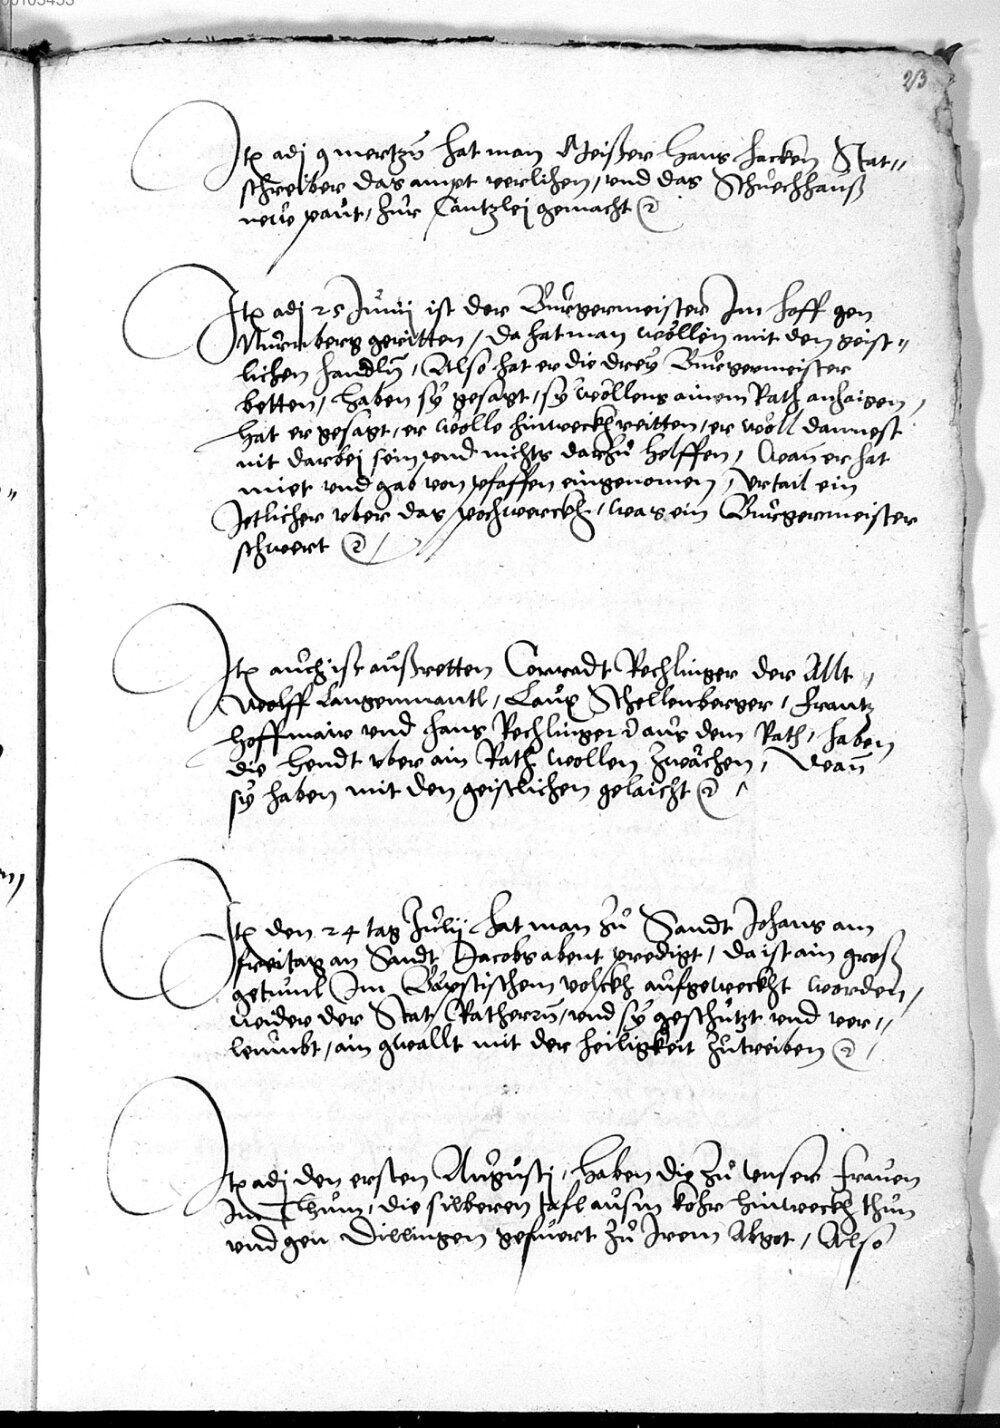 23
Itē adj 9 mertzū hat man Meister Hans Hacken Stat-
schreiber das ampt verlihen, und das Schuechhauß
neuw paut, zur Cantzlej gemacht
Itē adj 25 Junij ist der Burgermeister Im hoff gen
Nurmberg geritten, da hat man wöllen mit den geist-
lichen handlū, Also hat er die dreÿ Burgermeister
betten, haben sÿ gesagt, sÿ wöllens ainem Rath anhaigen,
hat er gesagt, er wölle hinweckh reitten, er wöll dannest
nit darbej sein und nichts darzů helffen, Wañ er hat
miet und gab von pfaffen eingenomen, Urtail ein
Jetlicher uber das pochwerckh, was ein Burgermeister
schwert
Itē auch ist außretten Conradt Rechlinger der Allt,
Wolff Langenmantl, Laux Schellenberger, Frantz
Hoffmair und Hans Rechlinger aus dem Rath, haben
die hendt uber ain Rath wollen zwachen, Wañ
sÿ haben mit den geistlichen gelaicht
Itē den 24 tag Julij hat man zů Sandt Johans am
freitag an Sandt Jacobs abent predigt, da ist ain groß
getuml Im Bäpstischem volckh aufgeweckht worden,
wider der Stat Ratherrn, und sÿ geschützt und ver-
lenubt, ain gwallt mit der heiligkeit zutreiben
Itē adj den ersten Augustj, haben die zů unser Frauen
Im Thum, die silberen tafl ausm Kohr hinweckh thun
und gen Dillingen gefuert zů Irem Abgot, Also